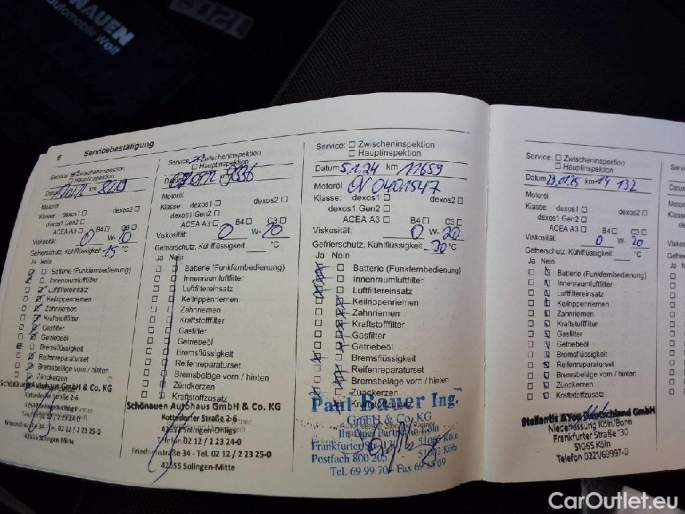 NAUEN
automobile Welt
6 Servicebestätigung
Service: Zwischeninspektion
Hauptinspektion
Datum km
Motoröl
Klasse: dexos1 dexos2
dexos1 Gen2
ACEA A3 B4 C3
Viskosität: 0 W-
Gefrierschutz, Kühlflüssigkeit °C
Ja Nein
Batterie (Funkfernbedienung)
Innenraumluftfilter
Luftfiltereinsatz
Keilrippenriemen
Zahnriemen
Kraftstofffilter
Gasfilter
Getriebeöl
Bremsflüssigkeit
Reifenreparaturset
Bremsbeläge vorn / hinten
Zündkerzen
Schönauen Autohaus GmbH & Co. KG
Kottendorfer Straße 2-6
42697 Solingen-Ohligs
Solingen-Mitte
Service: Zwischeninspektion
Hauptinspektion
Datum km
Motoröl
Klasse: dexos1 dexos2
dexos1 Gen2
ACEA A3 B4 C3
Viskosität: 0 W-20
Gefrierschutz, Kühlflüssigkeit °C
Ja Nein
Batterie (Funkfernbedienung)
Innenraumluftfilter
Luftfiltereinsatz
Keilrippenriemen
Zahnriemen
Kraftstofffilter
Gasfilter
Getriebeöl
Bremsflüssigkeit
Reifenreparaturset
Bremsbeläge vorn / hinten
Zündkerzen
Kraftstoffzusatz
Schönauen Autohaus GmbH & Co. KG
Kottendorfer Straße 2-6
42697 Solingen-Ohligs
Telefon 02 12 / 2 23 24-0
34 - Tel. 02 12 / 2 23 25-0
42655 Solingen-Mitte
Service: Zwischeninspektion
Hauptinspektion
Datum 5.1.24 km 11659
Motoröl OV0401547
Klasse: dexos1 dexos2
dexos1 Gen2
ACEA A3 B4 C3
Viskosität: 0 W-20
Gefrierschutz, Kühlflüssigkeit -30 °C
Ja Nein
Batterie (Funkfernbedienung)
Innenraumluftfilter
Luftfiltereinsatz
Keilrippenriemen
Zahnriemen
Kraftstofffilter
Gasfilter
Getriebeöl
Bremsflüssigkeit
Reifenreparaturset
Bremsbeläge vorn / hinten
Zündkerzen
Paul Bauer Ing.
GmbH & Co. KG
Frankfurter
Postfach 800 205
Tel. 69 99 70 Fax
Service: Zwischeninspektion
Hauptinspektion
Datum km 14 132
Motoröl
Klasse: dexos1
dexos1 Gen2
ACEA A3
Viskosität: 0 W-20
Gefrierschutz, Kühlflüssigkeit
Ja Nein
Batterie (Funkfernbedienung)
Innenraumluftfilter
Luftfiltereinsatz
Keilrippenriemen
Zahnriemen
Kraftstofffilter
Gasfilter
Getriebeöl
Bremsflüssigkeit
Reifenreparaturset
Bremsbeläge vorn / hinten
Zündkerzen
Kraftstoffzusatz
Stellantis & You Deutschland GmbH
Niederlassung Köln/Bonn
Frankfurter Straße 130
51065 Köln
Telefon 0221/69997-0
CarOutlet.eu